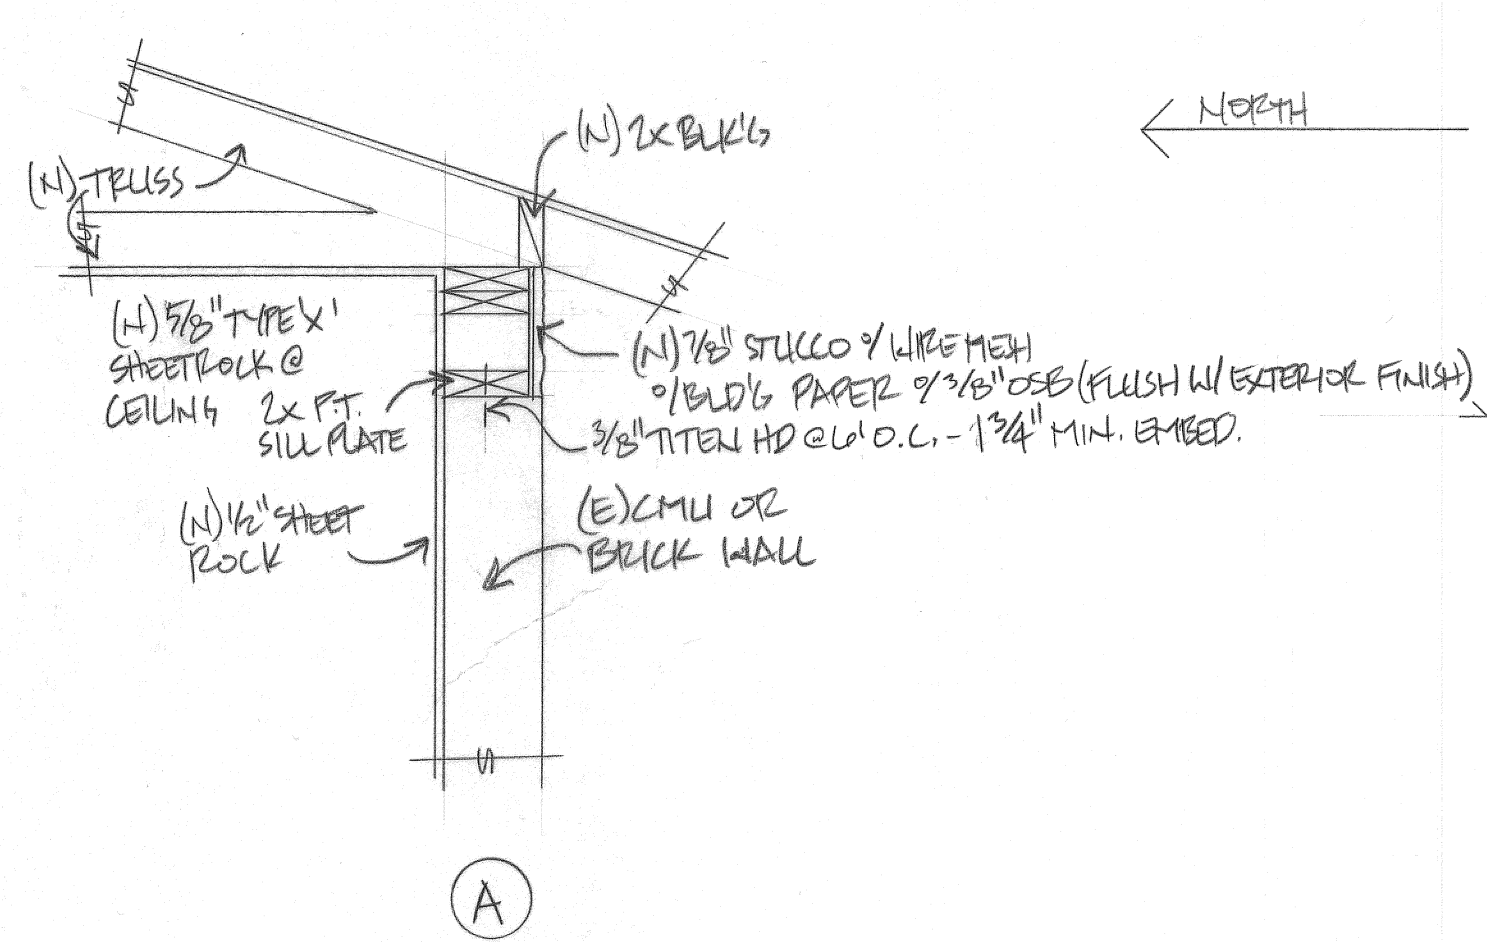 NORTH
(N) 2X BLK'G
(N) TRUSS
(N) 5/8" TYPE 'X'
SHEETROCK @
CEILING
2X P.T.
SILL PLATE
(N) 7/8" STUCCO o/ WIRE MESH
o/ BLD'G PAPER o/ 3/8" OSB (FLUSH W/ EXTERIOR FINISH)
3/8" TITEN HD @ 6' O.C. - 1 3/4" MIN. EMBED.
(N) 1/2" SHEET
ROCK
(E) CMU OR
BRICK WALL
A